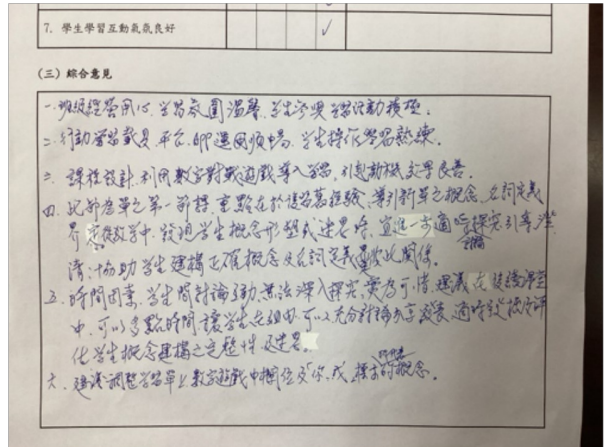 7. 學生學習互動氣氛良好 ✓
(三) 綜合意見
一. 班級經營用心, 學習氛圍溫馨, 學生參與學習活動積極。
二. 行動學習載具、平台、APP運用順暢, 學生操作學習熟練。
三. 課程設計, 利用數字對戰遊戲導入學習, 引起動機效果良善。
四. 此節為單元第一節課, 重點在於舊經驗、導引新單元概念, 名詞定義
界定教學中, 發現學生概念形塑或迷思時, 宜進一步適時探究引導澄
清, 協助學生建構正確概念及名詞定義彼此關係。
五. 時間因素, 學生間討論互動無法深入探究, 實為可惜, 建議在後續課室
中, 可以多點時間讓學生在組內可以充分討論分享發表, 適時
學生概念建構之完整性及迷思。
六. 建議調整學習單上數字遊戲中欄位及你、我、的概念。